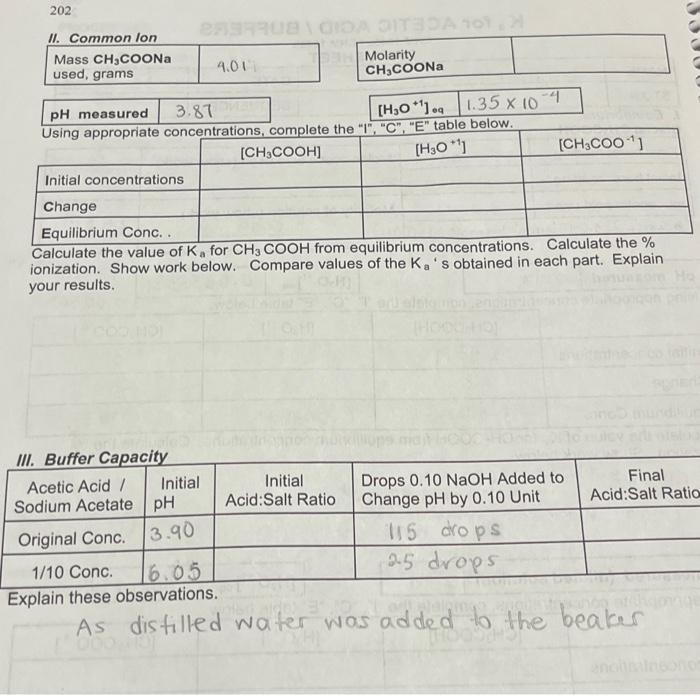 202
II. Common Ion
Mass CH₃COONa used, grams
Molarity CH₃COONa
pH measured 3.87 [H₃O⁺¹]eq 1.35 x 10⁻⁴
Using appropriate concentrations, complete the "I", "C", "E" table below.
[CH₃COOH] [H₃O⁺¹] [CH₃COO⁻¹]
Initial concentrations
Change
Equilibrium Conc. .
Calculate the value of Kₐ for CH₃ COOH from equilibrium concentrations. Calculate the %
ionization. Show work below. Compare values of the Kₐ's obtained in each part. Explain
your results.
III. Buffer Capacity
Acetic Acid / Initial Initial Drops 0.10 NaOH Added to Final
Sodium Acetate pH Acid:Salt Ratio Change pH by 0.10 Unit Acid:Salt Ratio
Original Conc. 3.90 115 drops
1/10 Conc. 6.05 25 drops
Explain these observations.
As distilled water was added to the beaker